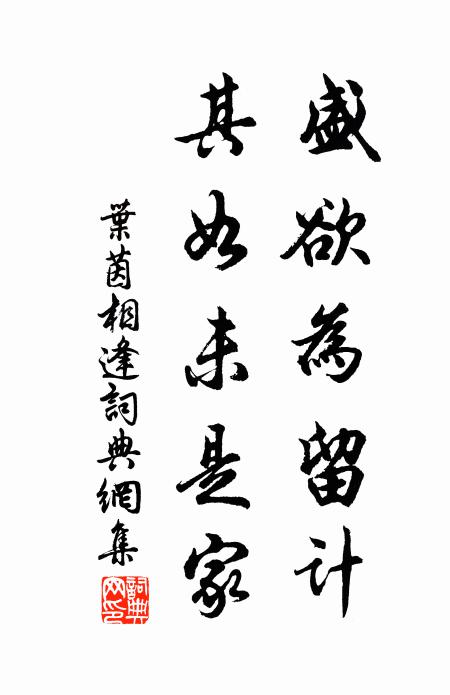 盛欲為留計
其如未是家
葉茵相逢詞典網集
詞典網印